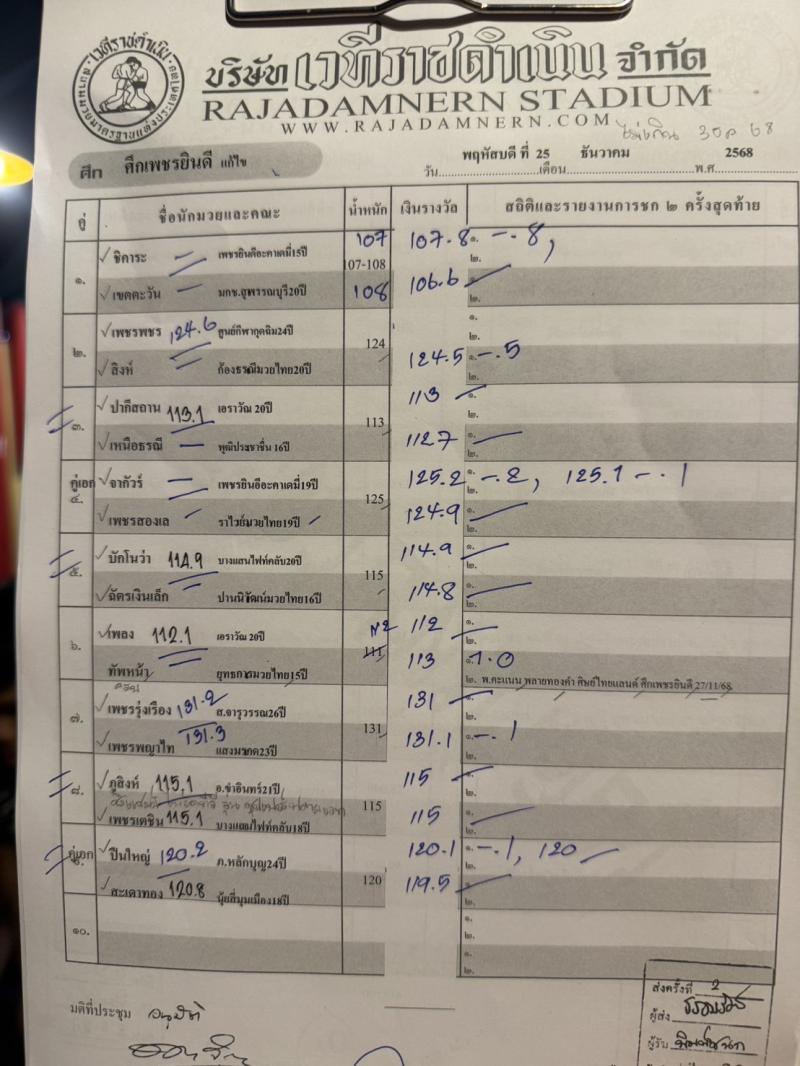 เวทีราชดำเนิน
บริษัท เวทีราชดำเนิน จำกัด
RAJADAMNERN STADIUM
WWW.RAJADAMNERN.COM
ศึก ศึกเพชรยินดี แก้ไข
พฤหัสบดี ที่ 25 ธันวาคม 2568
วัน เดือน พ.ศ.
คู่ ชื่อนักมวยและคณะ น้ำหนัก เงินรางวัล สถิติและรายงานการชก ๒ ครั้งสุดท้าย
๑. ชิคาระ เพชรยินดีอะคาเดมี่15ปี 107 107-108 107.8 ๑. -.8, ๒.
เขตตะวัน มกช.สุพรรณบุรี20ปี 108 106.6 ๑. ๒.
๒. เพชรพชร 124.6 ศูนย์กีฬากุดฉิม24ปี 124 ๑. ๒.
สิงห์ ก้องธรณีมวยไทย20ปี 124.5 ๑. -.5 ๒.
๓. ปากีสถาน 113.1 เอราวัณ 20ปี 113 113 ๑. ๒.
เหนือธรณี พุฒิประชาชื่น 16ปี 112.7 ๑. ๒.
คู่เอก ๔. จากัวร์ เพชรยินดีอะคาเดมี่19ปี 125 125.2 ๑. -.2, 125.1 -.1 ๒.
เพชรสองเล ราไวย์มวยไทย19ปี 124.9 ๑. ๒.
๕. บักโนว่า 114.9 บางแสนไฟท์คลับ20ปี 115 114.9 ๑. ๒.
ฉัตรเงินเล็ก ปานนิวัฒน์มวยไทย16ปี 114.8 ๑. ๒.
๖. เพลง 112.1 เอราวัณ 20ปี 112 111 112 ๑. ๒.
ทัพหน้า ยุทธการมวยไทย15ปี 113 ๑. 1.0
๒. พ.คะแนน พลายทองคำ ศิษย์ไทยแลนด์ ศึกเพชรยินดี 27/11/68
๗. เพชรรุ่งเรือง 131.2 ส.จารุวรรณ26ปี 131 131 ๑. ๒.
เพชรพญาไท 131.3 แสงมรกต23ปี 131.1 ๑. -.1 ๒.
๘. ภูสิงห์ 115.1 อ.ขำอินทร์21ปี 115 115 ๑. ๒.
เพชรเตชิน 115.1 บางแสนไฟท์คลับ18ปี 115 ๑. ๒.
คู่เอก ๙. ปืนใหญ่ 120.2 ภ.หลักบุญ24ปี 120 120.1 ๑. -.1, 120 ๒.
สะเดาทอง 120.8 นุ้ยสี่มุมเมือง18ปี 119.5 ๑. ๒.
๑๐. ๑. ๒.
๑. ๒.
มติที่ประชุม อนุมัติ
ส่งครั้งที่ 2
ผู้ส่ง
ผู้รับ